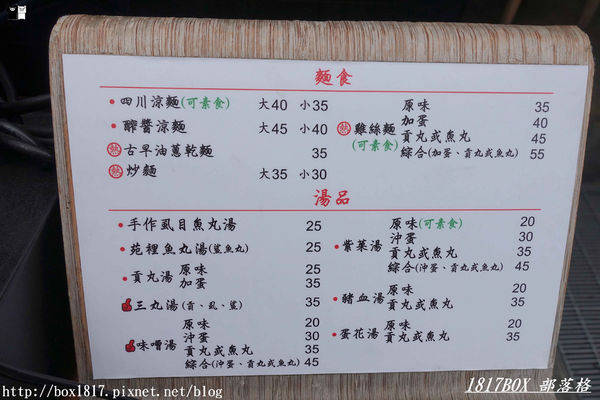 麵食
•四川涼麵(可素食) 大40 小35
•酢醬涼麵 大45 小40
熱 古早油蔥乾麵 35
熱 炒麵 大35 小30
熱 雞絲麵(可素食)
原味 35
加蛋 40
貢丸或魚丸 45
綜合(加蛋、貢丸或魚丸) 55
湯品
•手作虱目魚丸湯 25
•苑裡魚丸湯(鯊魚丸) 25
•貢丸湯 原味 25
加蛋 35
三丸湯(貢、虱、鯊) 35
味噌湯 原味 20
沖蛋 30
貢丸或魚丸 35
綜合(沖蛋、貢丸或魚丸) 45
•紫菜湯 原味(可素食) 20
沖蛋 30
貢丸或魚丸 35
綜合(沖蛋、貢丸或魚丸) 45
•豬血湯 原味 20
貢丸或魚丸 35
•蛋花湯 原味 20
貢丸或魚丸 35
1817BOX 部落格
http://box1817.pixnet.net/blog